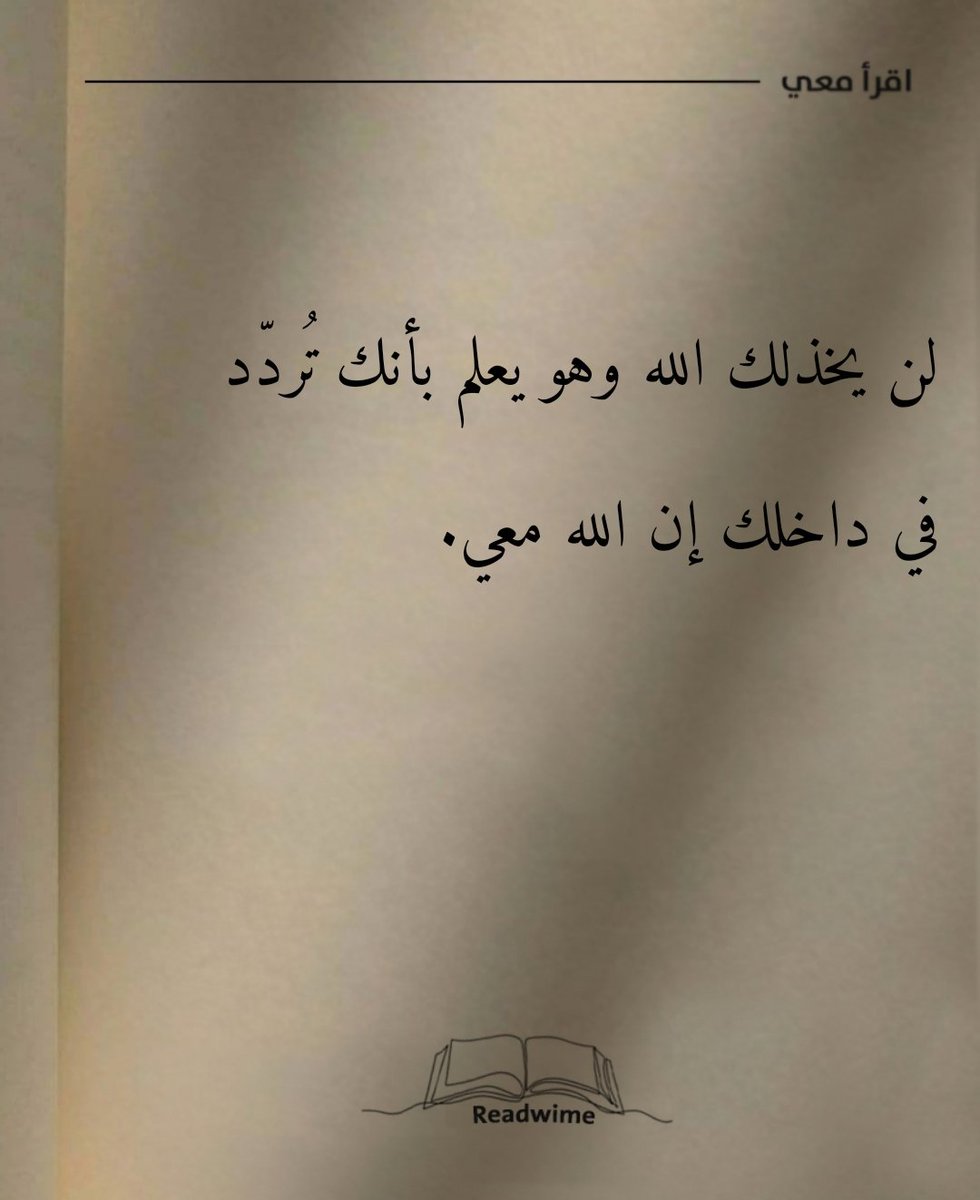 اقرأ معي
لن يخذلك الله وهو يعلم بأنك تُردّد
في داخلك إن الله معي.
Readwime